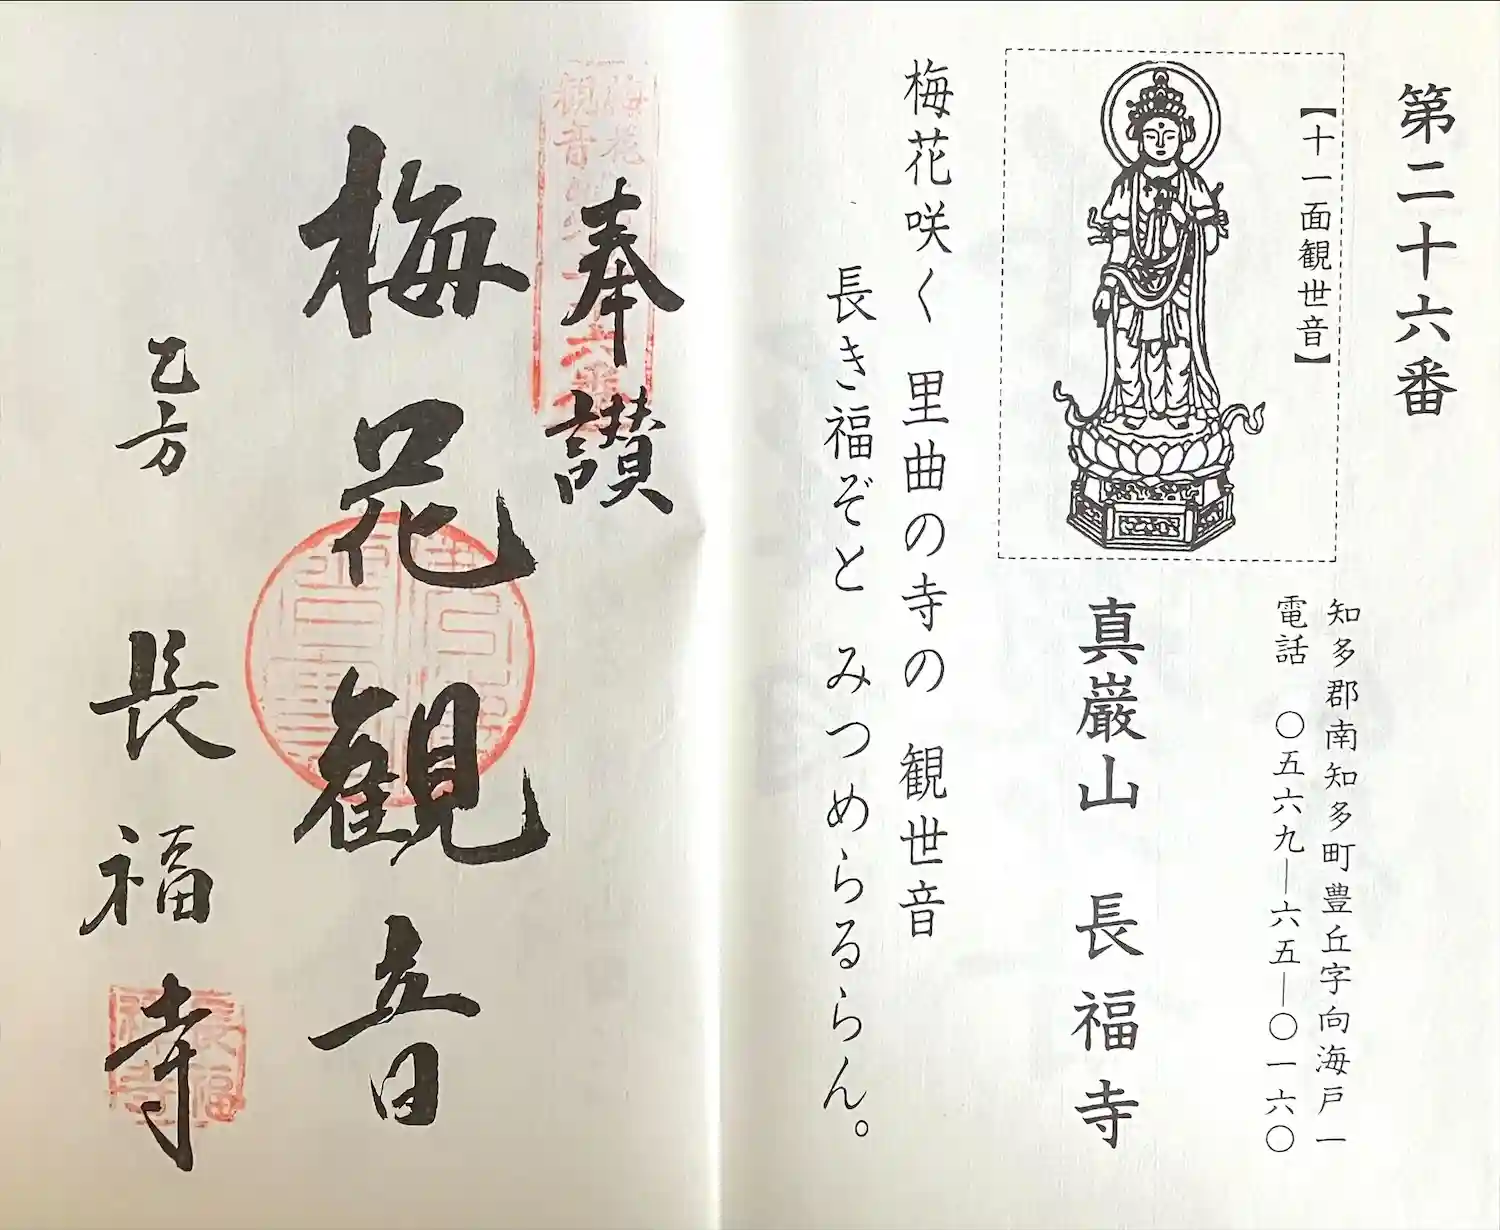 第二十六番
【十一面観世音】
知多郡南知多町豊丘字向海戸一
電話 〇五六九―六五―〇一六〇
真巌山 長福寺
梅花咲く 里曲の寺の 観世音
長き福ぞと みつめらるらん。
奉讃
梅花観音
乙方 長福寺
梅花
観音
長福
寺